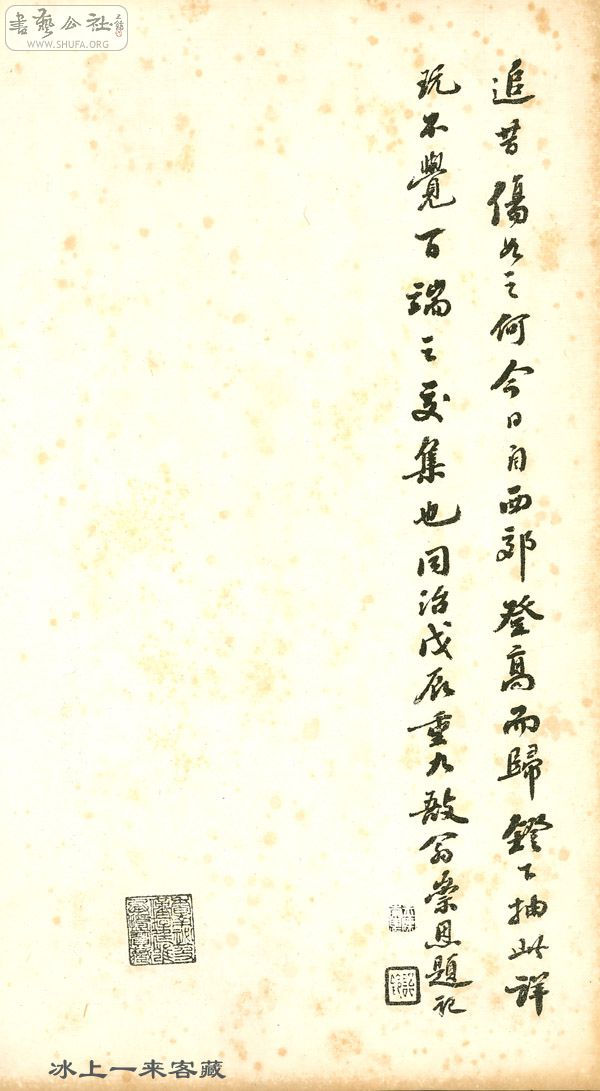 追昔傷如之何今日自西郊登高而歸鐙下抽此詳
玩不覺百端之交集也同治戊辰重九敔翁崇恩題記
書藝公社
WWW.SHUFA.ORG
冰上一来客藏